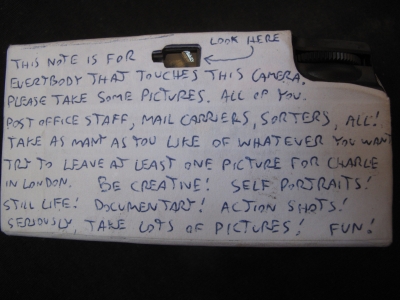 LOOK HERE
THIS NOTE IS FOR
EVERYBODY THAT TOUCHES THIS CAMERA.
PLEASE TAKE SOME PICTURES. ALL OF YOU.
POST OFFICE STAFF, MAIL CARRIERS, SORTERS, ALL!
TAKE AS MANY AS YOU LIKE OF WHATEVER YOU WANT
TRY TO LEAVE AT LEAST ONE PICTURE FOR CHARLE
IN LONDON. BE CREATINE! SELF PORTRAITS!
STILL LIFE! DOCUMENTARY! ACTION SHOTS!
SERIOUSLY, TAKE LOTS OF PICTURES! FUN!